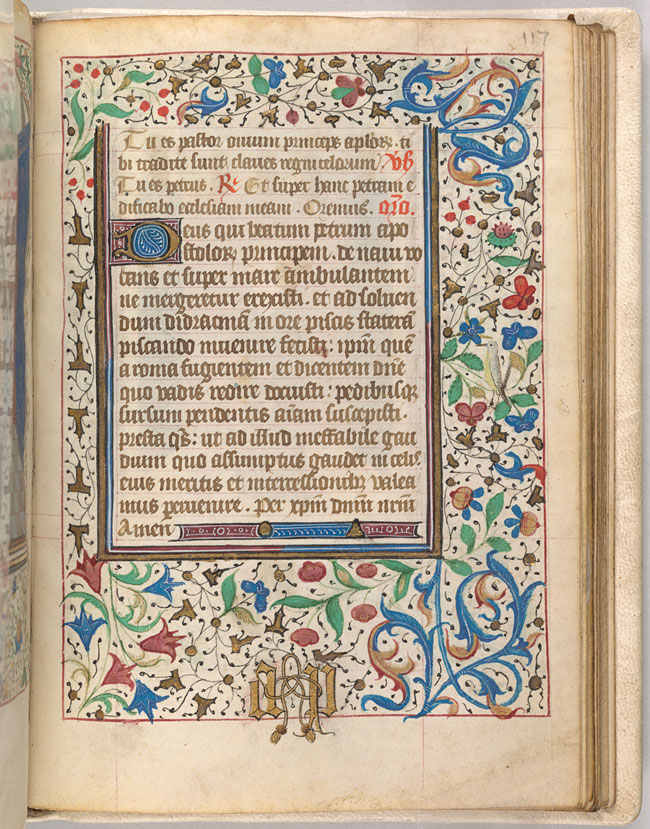 117
Tu es pastor ovium princeps aplorꝝ. ti
bi tradite sunt claves regni celorum v̄s
Tu es petrus. R̄ Et super hanc petram e
dificabo ecclesiam meam. Oremus. or̄o.
Deus qui beatum petrum apo
stolorꝝ principem. de navi vo
cans et super mare ābulantem
ne mergeretur erexisti. et ad soluen
dum didracmā in ore piscis staterā
piscando invenire fecistj: ipm̄ quē
a roma fugientem et dicentem dn̄e
quo vadis redire docuisti: pedibusqꝫ
sursum pendentis aīam suscepisti.
presta qs̄: ut ad illud ineffabile gau
dium quo assumptus gaudet in celis
eius meritis et intercessionibꝫ valea
mus pervenire. Per xpm̄ dnm̄ nrm̄
Amen